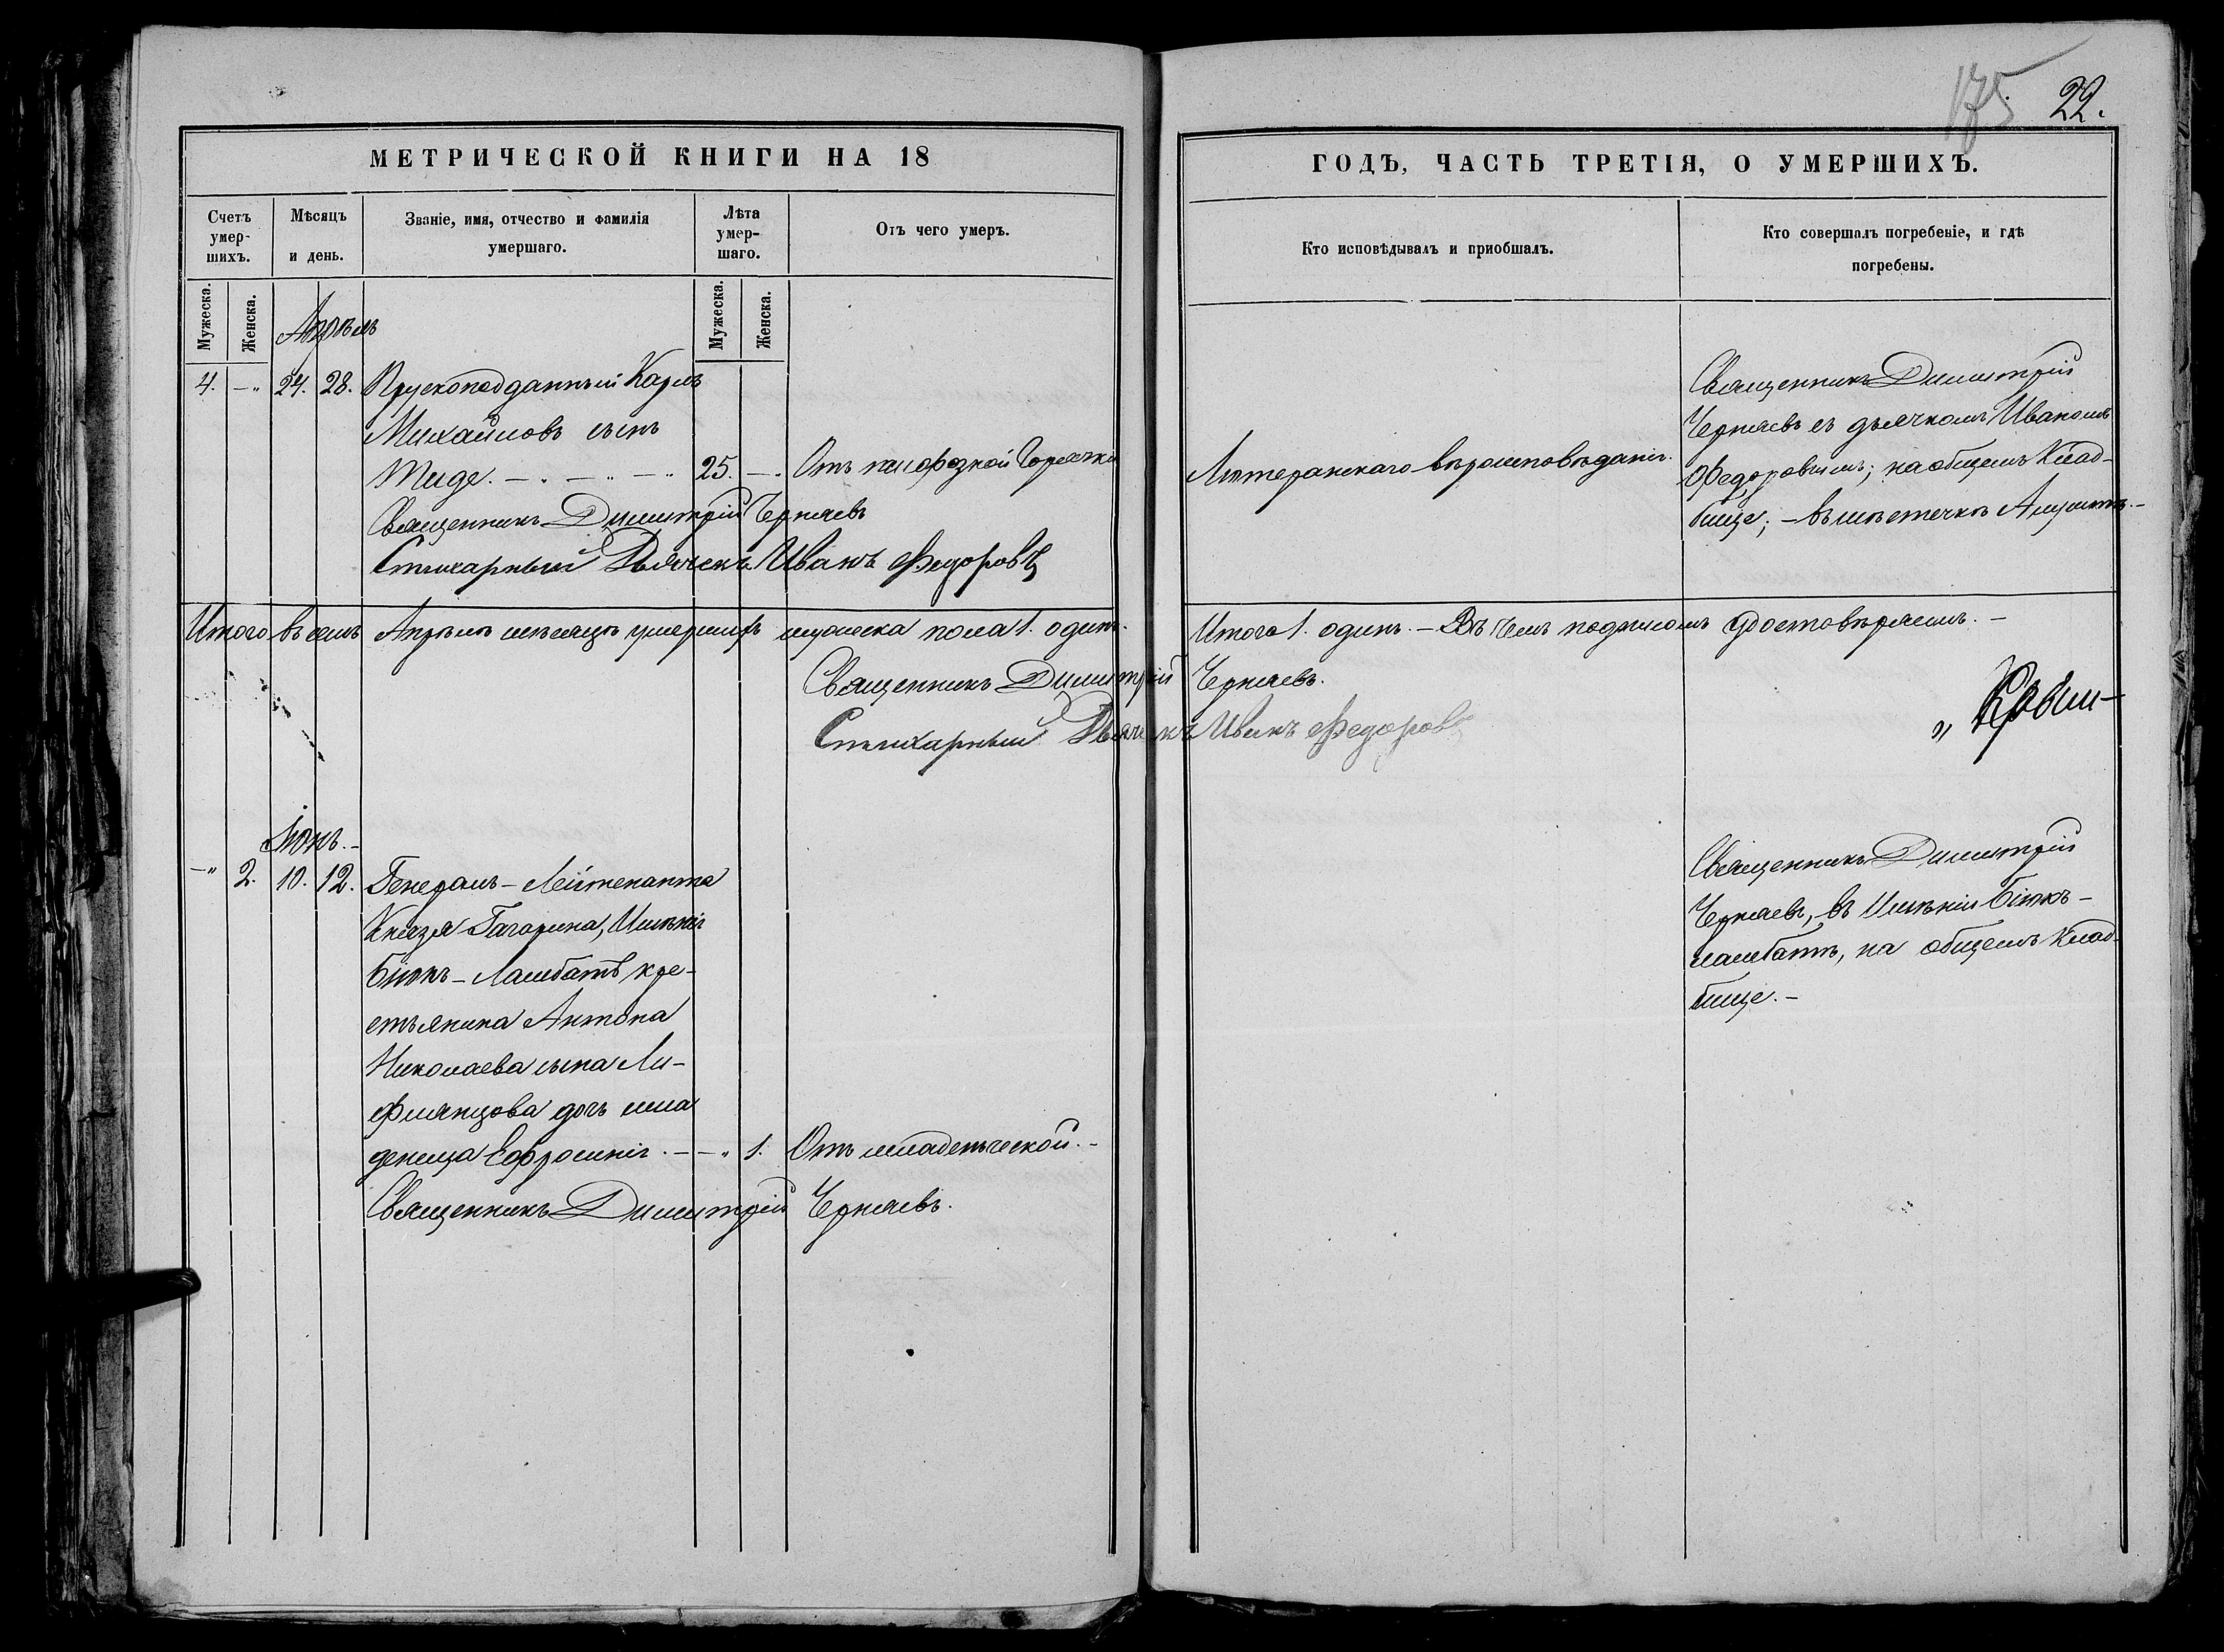 175 22.
МЕТРИЧЕСКОЙ КНИГИ НА 18
Счетъ умер- шихъ.
Мѣсяцъ и день.
Званіе, имя, отчество и фамилія умершаго.
Лѣта умер- шаго.
Отъ чего умеръ.
Мужеска.
Женска.
Мужеска.
Женска.
Апрѣль
4. —„ 24. 28. Прускоподданный Карлъ
Михайловъ сынъ
Тиде. 25. —. Отъ горячки
Священникъ Димитрій Черняевъ
Стихарный Дьячекъ Иванъ Федоровъ
Итого въ семъ Апрѣлѣ мѣсяцѣ умершихъ мужеска пола 1. одинъ.
Священникъ Димитрій Черняевъ.
Стихарный Дьячекъ Иванъ Федоровъ
Іюнь.
—„ 2. 10. 12. Генералъ-Лейтенанта
Князя Гагарина, Имѣнія
Біюкъ-Ламбатъ кре-
стьянина Антона
Николаева сына Ли-
флянцова дочь мла
деница Ефросинія. — —„ 1. Отъ младенческой.-
Священникъ Димитрій Черняевъ.
ГОДЪ, ЧАСТЬ ТРЕТІЯ, О УМЕРШИХЪ.
Кто исповѣдывалъ и приобщалъ.
Кто совершалъ погребеніе, и гдѣ
погребены.
Священникъ Димитрій
Черняевъ съ дьячкомъ Иваномъ
Лютеранскаго вѣроисповѣданія. Федоровымъ; на общемъ Клад-
бище; - въ мѣстечкѣ
Итого 1. одинъ. - Въ чемъ подписомъ удостовѣряемъ. -
Священникъ Димитрій
Черняевъ, въ Имѣніи Біюкъ-
ламбатъ, на общемъ клад-
бище. -